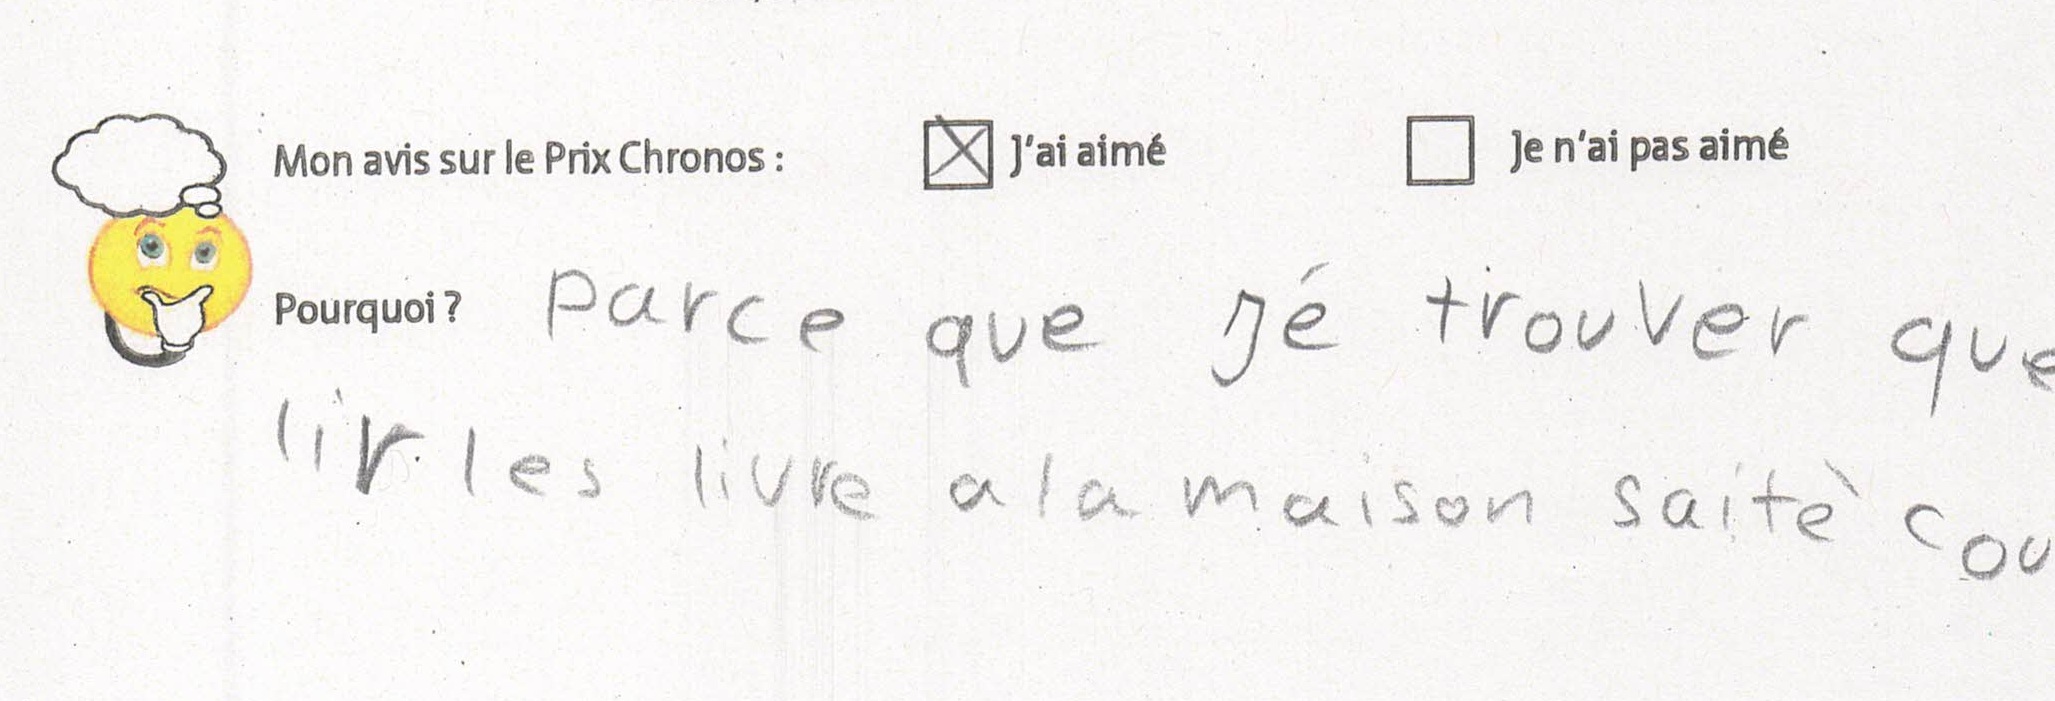 Mon avis sur le Prix Chronos : J'ai aimé Je n'ai pas aimé
Pourquoi ? Parce que jé trouver que
lir les livre a la maison saitè cou